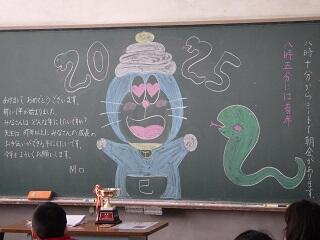 2025
あけまして おめでとうございます。
新しい年が始まりました。
みなさんは どんな年にしたいですか?
先生は 昨年以上に みなさんの成長の
お手伝いができる年にしたいです。
今年もよろしくお願いします。
関口
巳
八時十分から ミニ朝会があります。
八時五分には着席